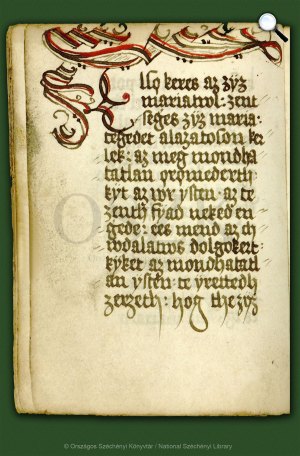 Elso keres az zyz
mariarol: zent
seges zyz maria:
tegedet alazatoson ke
lek: az meg mondha
tatlan ọrọmederth
kyt az wr ysten: az te
zenth fyad neked en
gede: ees mend az ch
wdalatws dolgokert
kyket az mondhatatl
an ysten: te yrettedh
zerzeth: hog the zyz
© Országos Széchényi Könyvtár / National Széchényi Library